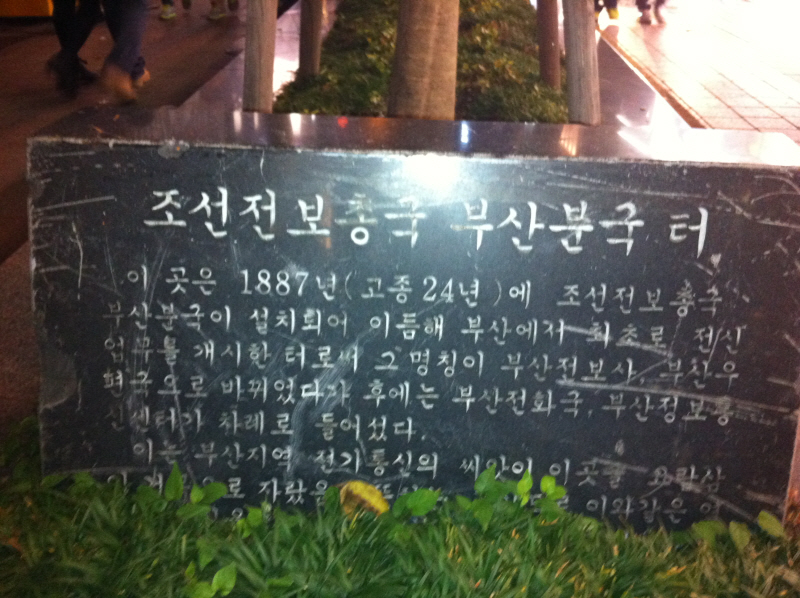 조선전보총국 부산분국 터
이 곳은 1887년(고종 24년)에 조선전보총국
부산분국이 설치되어 이듬해 부산에서 최초로 전신
업무를 개시한 터로써 그 명칭이 부산전보사, 부산우
편국으로 바뀌었다가 후에는 부산전화국, 부산정보통
신센터가 차례로 들어섰다.
이는 부산지역 전기통신의 씨앗이 이곳을 요람삼
자랐음을 이와같은 역